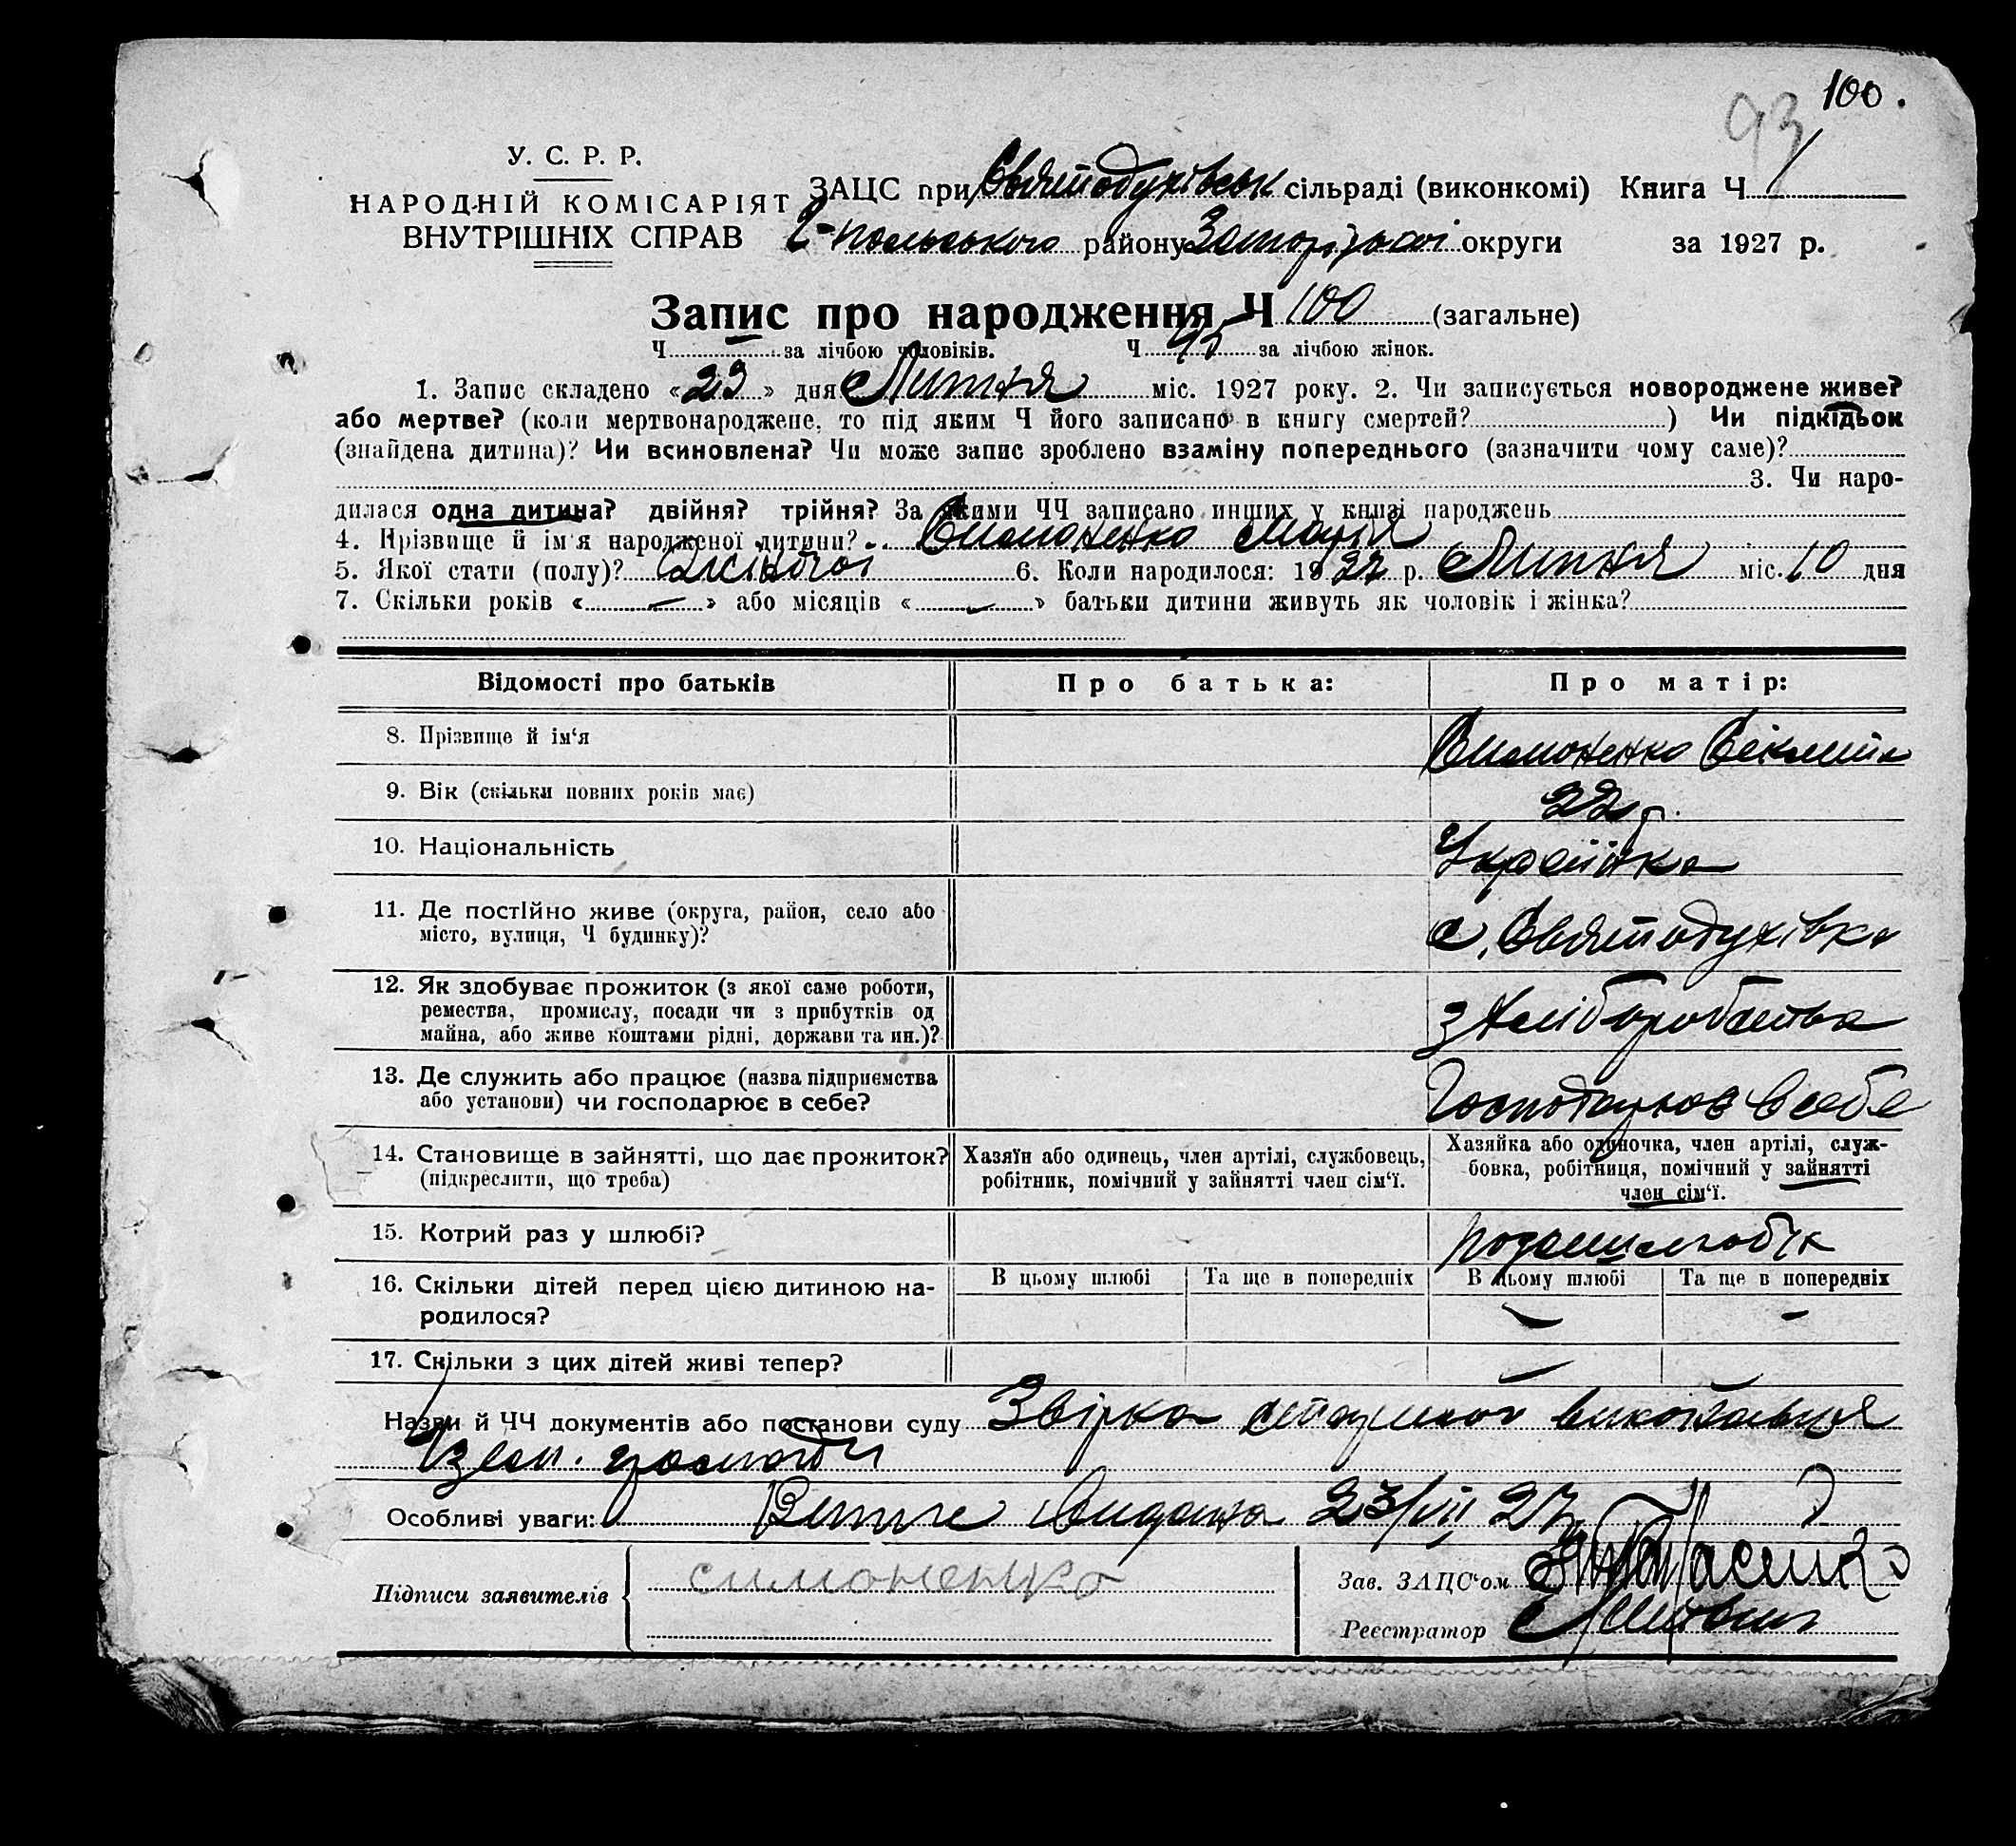 100.
93
У. С. Р. Р.
НАРОДНІЙ КОМІСАРІЯТ
ВНУТРІШНІХ СПРАВ
ЗАЦС при Святодухівськ сільраді (виконкомі) Книга Ч 1
Г-Польського району Запорізької округи за 1927 р.
Запис про народження Ч 100 (загальне)
Ч — за лічбою чоловіків. Ч 45 за лічбою жінок.
1. Запис складено «23» дня Липня міс. 1927 року. 2. Чи записується новороджене живе?
або мертве? (коли мертвонароджене, то під яким Ч його записано в книгу смертей? ) Чи підкідьок
(знайдена дитина)? Чи всиновлена? Чи може запис зроблено взаміну попереднього (зазначити чому саме)?
3. Чи наро-
дилася одна дитина? двійня? трійня? За якими ЧЧ записано инших у книзі народжень
4. Прізвище й ім'я народженої дитини? Симоненко Марія
5. Якої стати (полу)? Жіночої 6. Коли народилося: 1927 р. Липня міс. 10 дня
7. Скільки років «—» або місяців «—» батьки дитини живуть як чоловік і жінка?
Відомості про батьків Про батька: Про матір:
8. Прізвище й ім'я Симоненко
9. Вік (скільки повних років має) 22 р.
10. Національність Українка
11. Де постійно живе (округа, район, село або
місто, вулиця, Ч будинку)? с. Святодухівка
12. Як здобуває прожиток (з якої саме роботи,
ремества, промислу, посади чи з прибутків од
майна, або живе коштами рідні, держави та ин.)? з хліборобства
13. Де служить або працює (назва підприємства
або установи) чи господарює в себе? Господарює в себе
14. Становище в зайнятті, що дає прожиток?
(підкреслити, що треба)
Хазяїн або одинець, член артілі, службовець,
робітник, помічний у зайнятті член сім'ї.
Хазяйка або одиночка, член артілі, служ-
бовка, робітниця, помічний у зайнятті
член сім'ї.
15. Котрий раз у шлюбі?
16. Скільки дітей перед цією дитиною на-
родилося?
В цьому шлюбі Та ще в попередніх В цьому шлюбі Та ще в попередніх
— —
17. Скільки з цих дітей живі тепер? —
Назви й ЧЧ документів або постанови суду Звірка
Особливі уваги: Видана 23/VII 27
Підписи заявителів симоненко
Зав. ЗАЦС'ом
Реєстратор